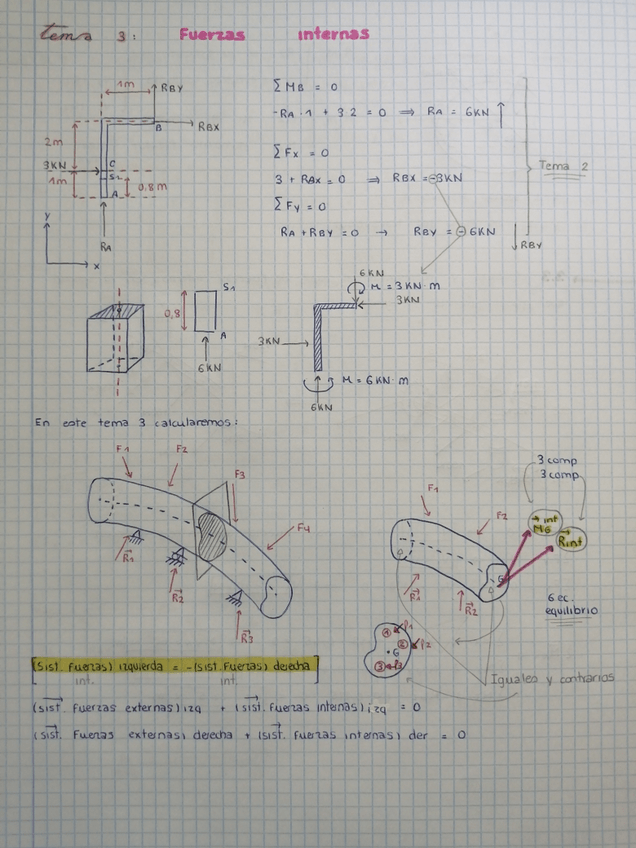 tema 3: Fuerzas internas
1m
RBY
RBX
B
2m
3KN
C
S1
1m
0,8m
A
RA
y
x
∑ MB = 0
-RA·1 + 3·2 = 0 ⟹ RA = 6KN ↑
∑ Fx = 0
3 + RBX = 0 ⟹ RBX = -3KN
∑ Fy = 0
RA + RBY = 0 → RBY = - 6KN ↓ RBY
Tema 2
S1
0,8
A
6KN
6KN
M = 3KN·m
3KN
3KN
M = 6KN·m
6KN
En este tema 3 calcularemos:
F1
F2
F3
F4
R1
R2
R3
F1
F2
R1
R2
G
3 comp
3 comp
MG int
Rint
6 ec.
equilibrio
1 P1
2 P2
G
3 P3
Iguales y contrarios
[(Sist. Fuerzas) izquierda = -(Sist. Fuerzas) derecha]
int. int.
(sist. Fuerzas externas) izq + (sist. Fuerzas internas) izq = 0
(sist. Fuerzas externas) derecha + (sist. Fuerzas internas) der = 0